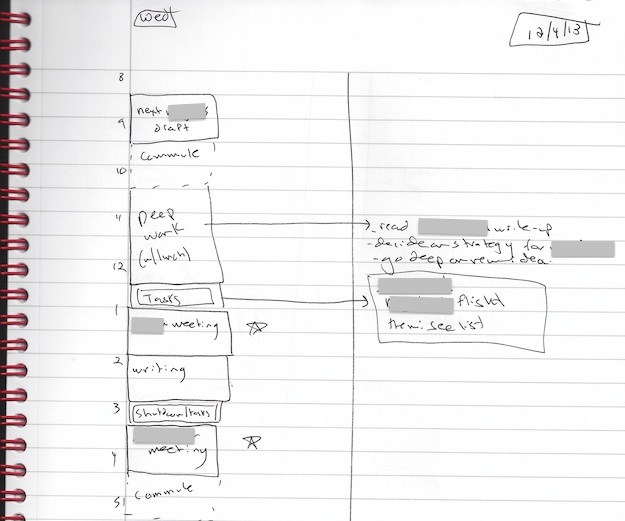 Wed
12/4/13
8
next
9
draft
commute
10
11
Deep
work
(w/lunch)
read write-up
-decide on strategy for
-go deep on new idea
12
Tasks
1
meeting
then: see list
2
writing
3
shutdown/tasks
meeting
4
commute
5